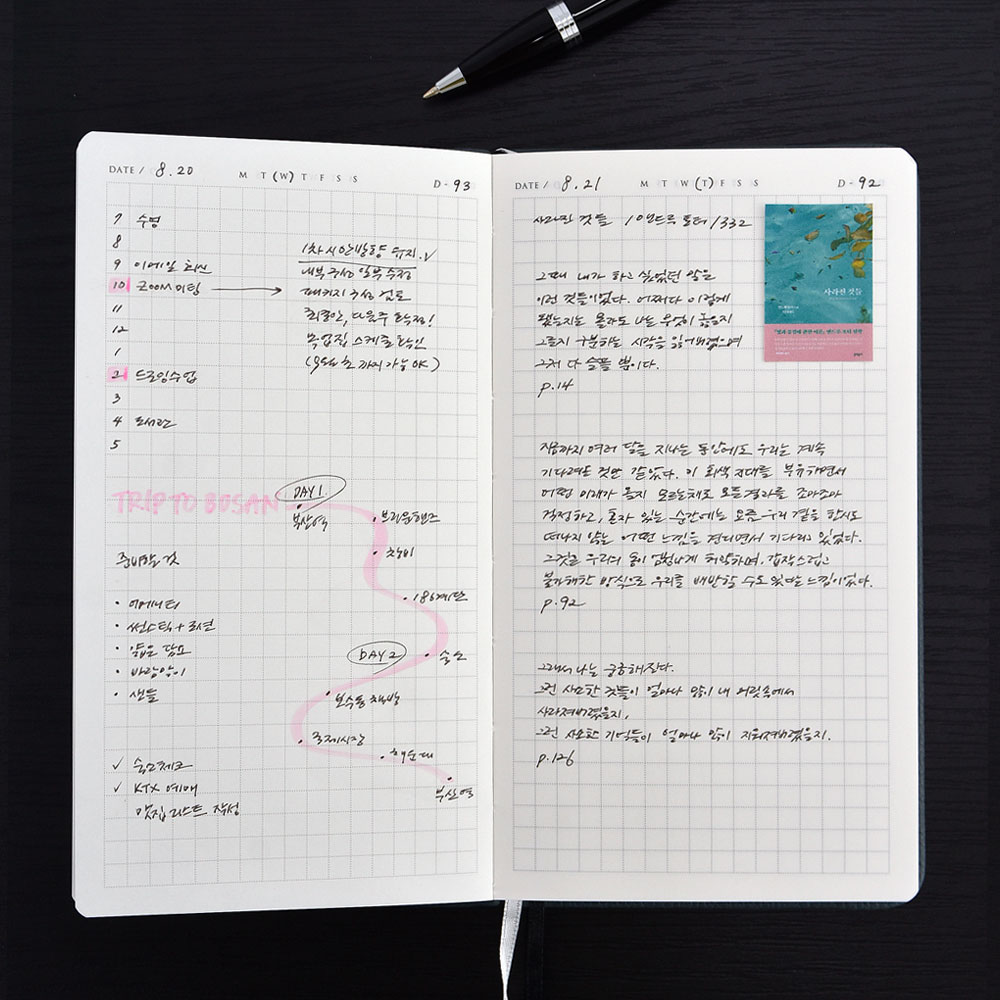 DATE / 8.20
M T (W) T F S S
D - 93
7 수영
8
9 이메일 회신
10 ZOOM 미팅
11
12
1
2 드로잉수업
3
4 도서관
5
1차 시안방향 유지.√
내부 구성 일부 수정
패키지 구성 검토
최종안, 다음주 확정!
목업집 스케줄 확인
(9월 초까지 가능 OK)
TRIP TO BUSAN
DAY 1
· 부산역
· 브라운핸즈
· 초량
· 186계단
DAY 2
· 숙소
· 보수동 책방
· 국제시장
· 해운대
· 부산역
준비할 것
· 어메니티
· 썬스틱 + 로션
· 얇은 담요
· 바람막이
· 샌들
√ 숙소체크
√ KTX 예매
맛집 리스트 작성
DATE / 8.21
M T W (T) F S S
D - 92
사라진 것들 / 앤드루 포터 / 332
그때 내가 하고 싶었던 말은
이런 것들이었다. 어쩌다 이렇게
됐는지는 몰라도 나는 무엇이 좋은지
그른지 구분하는 시각을 잃어버렸으며
그저 다 슬플 뿐이다.
p.14
지금까지 여러 달을 지나는 동안에도 우리는 계속
기다려온 것만 같았다. 이 회색 지대를 부유하면서
어떤 미래가 올지 모르는채로 모든 결과를 조마조마
걱정하고, 혼자 있는 순간에는 요즘 우리 곁을 한시도
떠나지 않는 어떤 느낌을 견디면서 기다리고 있었다.
그것은 우리의 몸이 엄청나게 허약하며, 갑작스럽고
불가해한 방식으로 우리를 배반할 수도 있다는 느낌이었다.
p.92
그래서 나는 궁금해진다.
그런 사소한 것들이 얼마나 많이 내 머릿속에서
사라져버렸을지,
그런 사소한 기억들이 얼마나 많이 지워져버렸을지.
p.126
사라진 것들